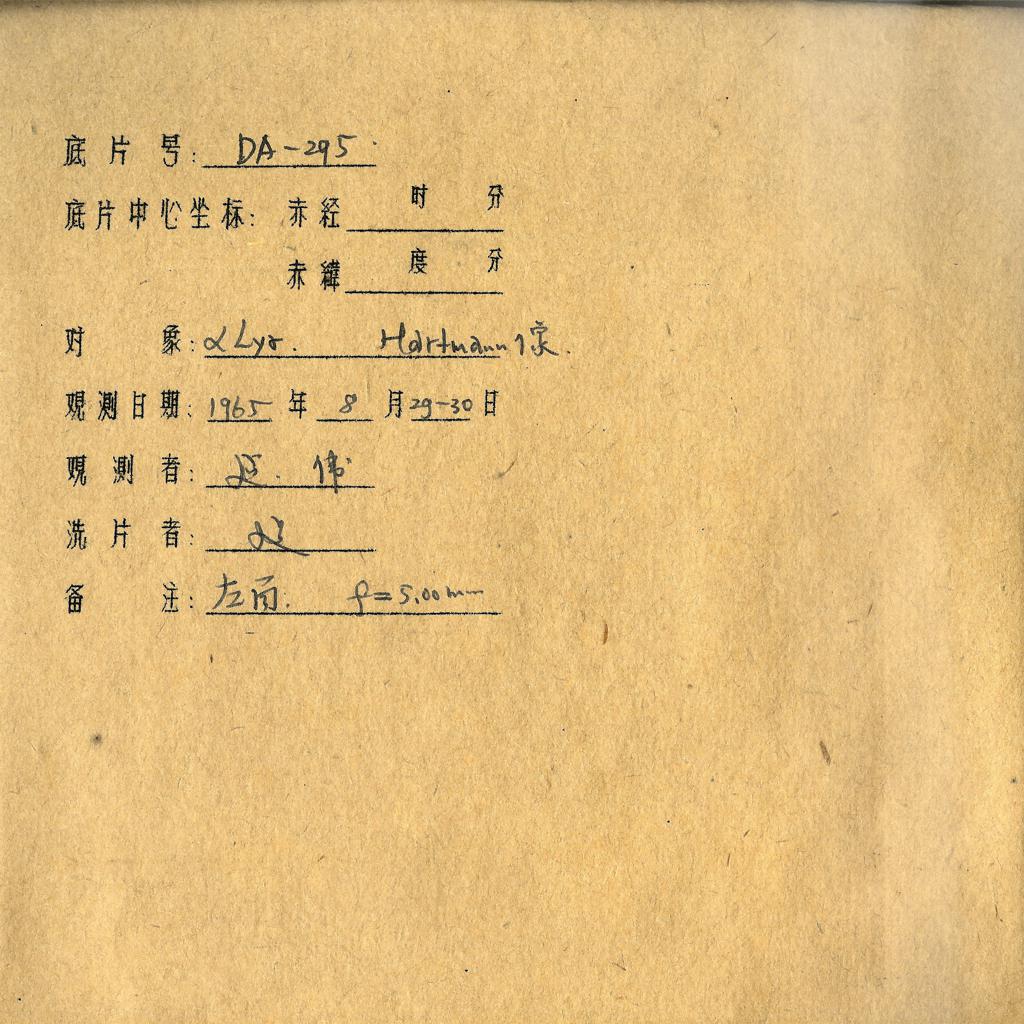 底片号: DA-295
时 分
底片中心坐标: 赤经
度 分
赤緯
对 象: αLyr. Hartmann 像.
观测日期: 1965 年 8 月 29-30 日
观测者: 伟
洗片者:
备 注: 左面. f=5.00mm